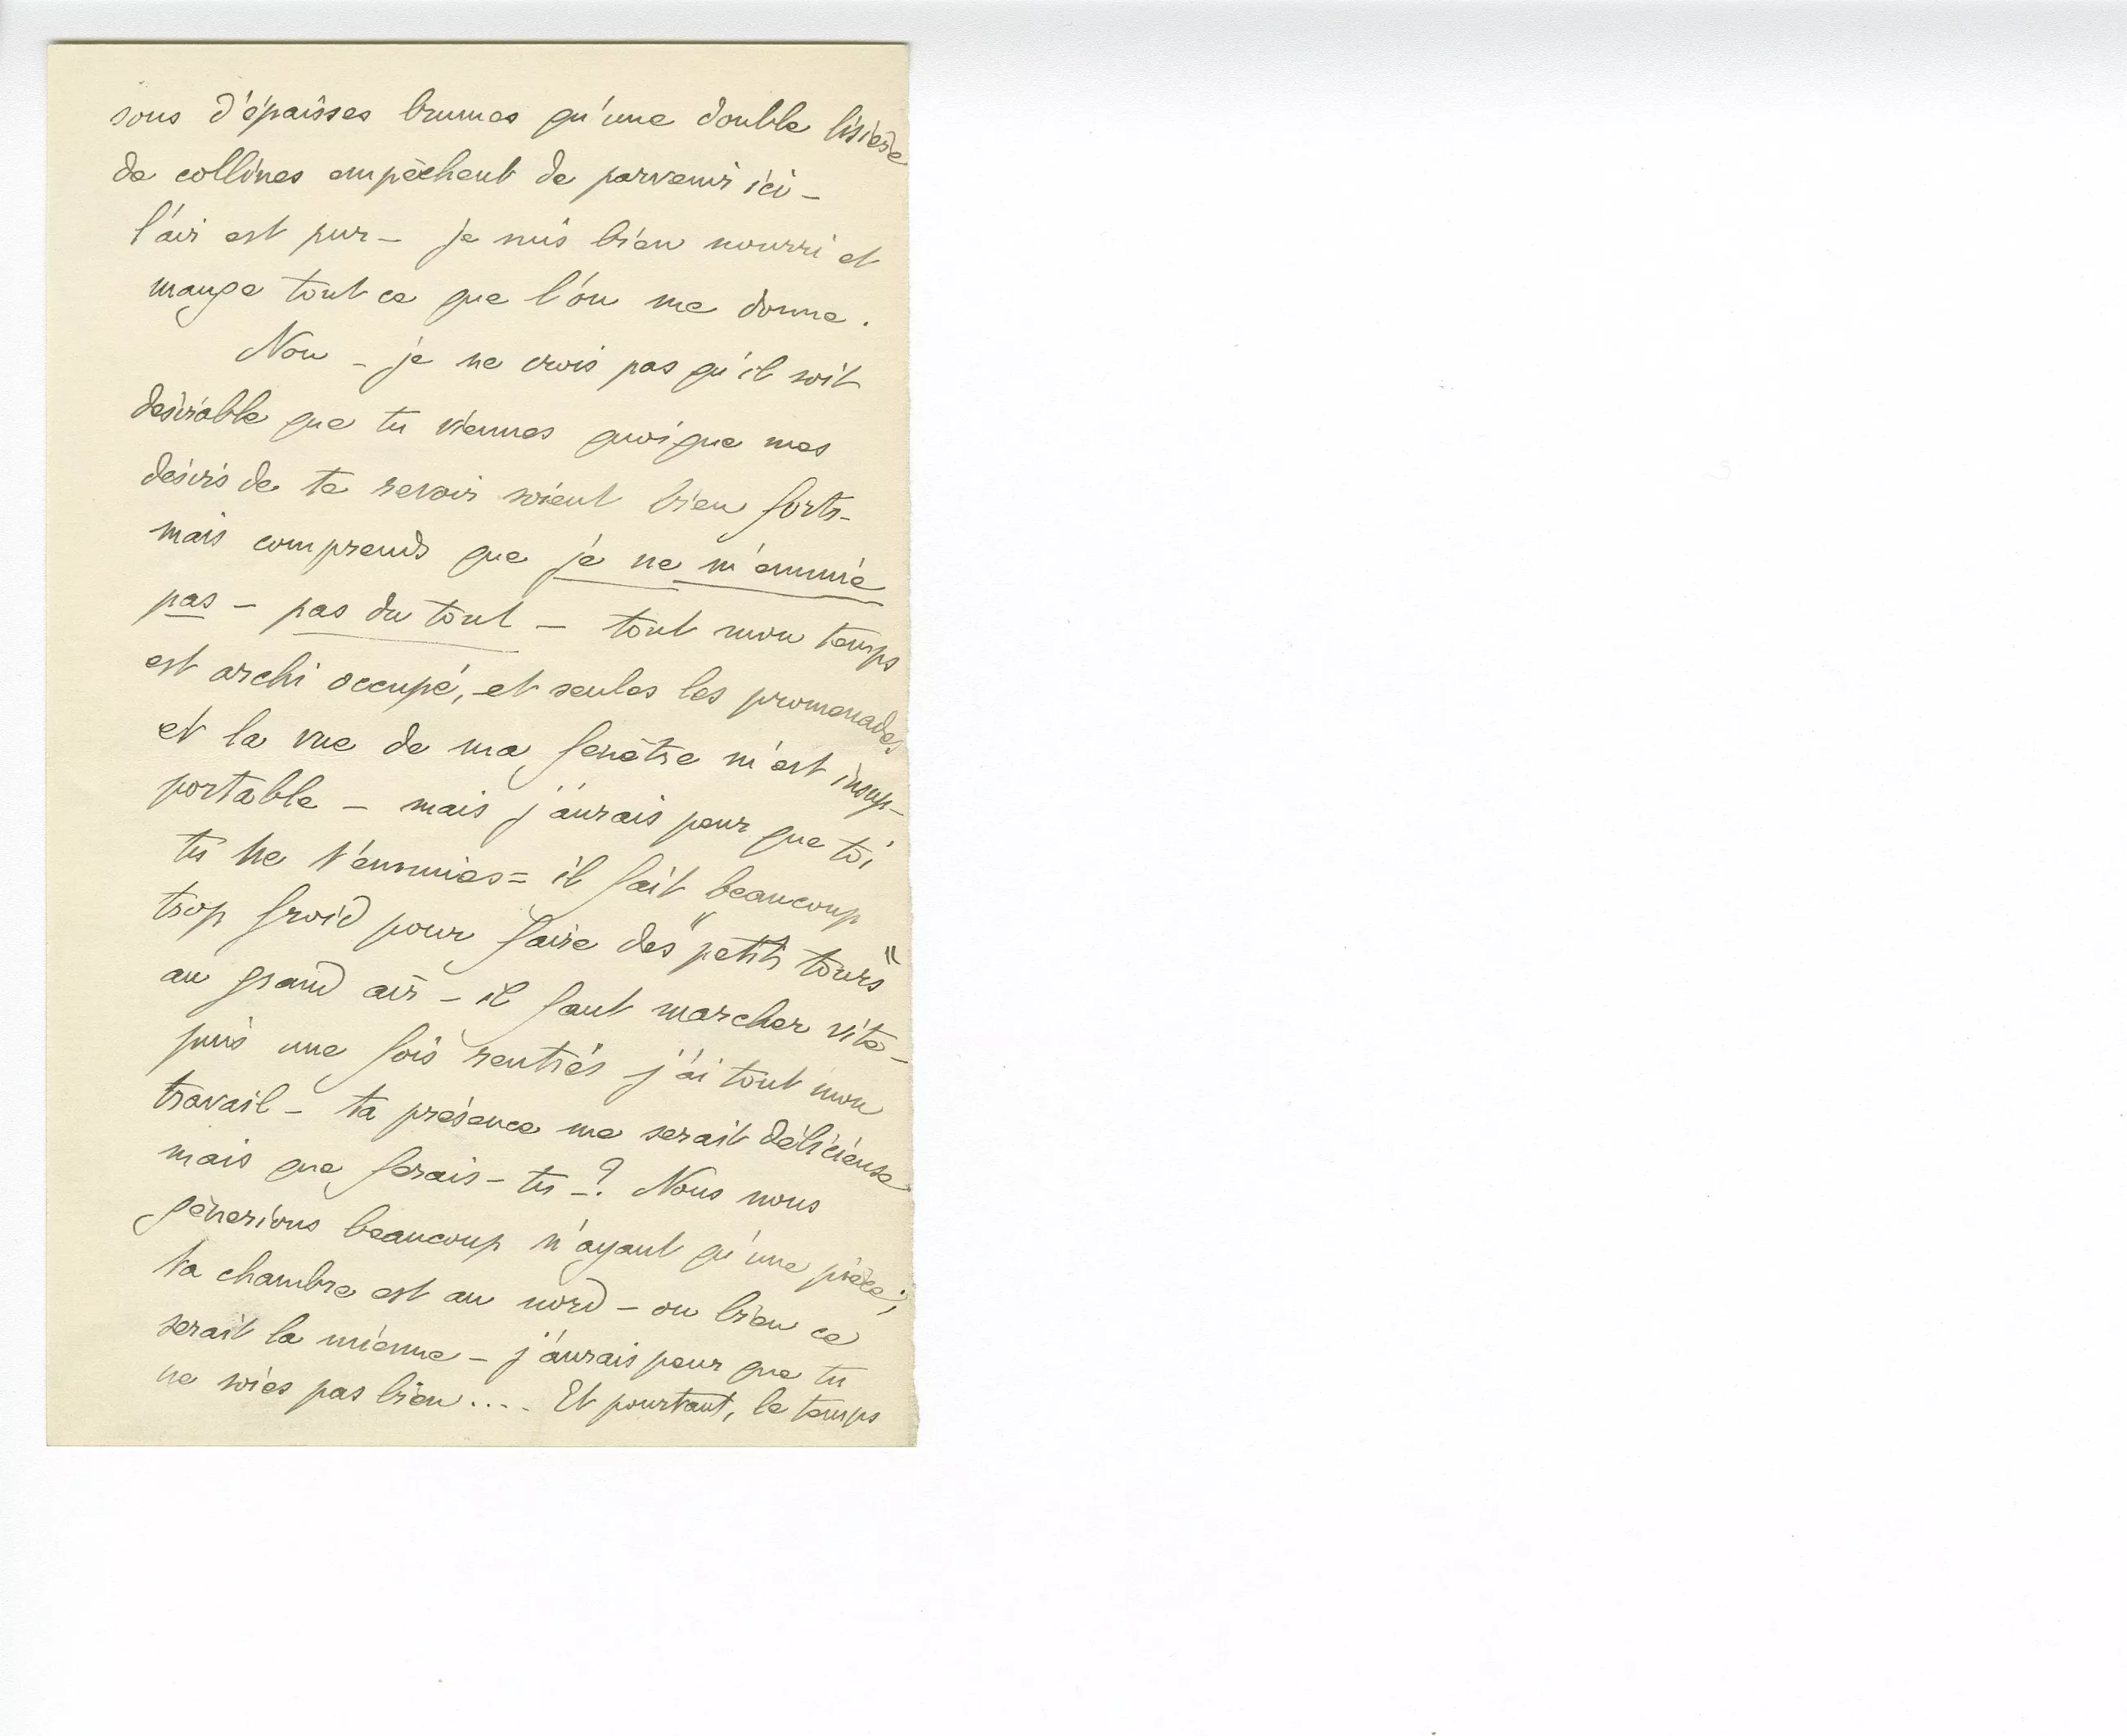 sous d'épaisses brumes qu'une double lisière
de collines empêchent de parvenir ici –
l'air est pur – je suis bien nourri et
mange tout ce que l'on me donne.
Non – je ne crois pas qu'il soit
désirable que tu viennes quoique mes
désirs de te revoir soient bien forts –
mais comprends que je ne m'ennuie
pas – pas du tout – tout mon temps
est archi occupé, et seules les promenades
et la vue de ma fenêtre m'est insup-
portable – mais j'aurais peur que toi
tu ne t'ennuies = il fait beaucoup
trop froid pour faire des "petits tours"
au grand air – il faut marcher vite –
puis une fois rentrés j'ai tout mon
travail – ta présence me serait délicieuse
mais que ferais-tu – ? Nous nous
gênerions beaucoup n'ayant qu'une pièce ;
ta chambre est au nord – ou bien ce
serait la mienne – j'aurais peur que tu
ne soies pas bien .... Et pourtant, le temps